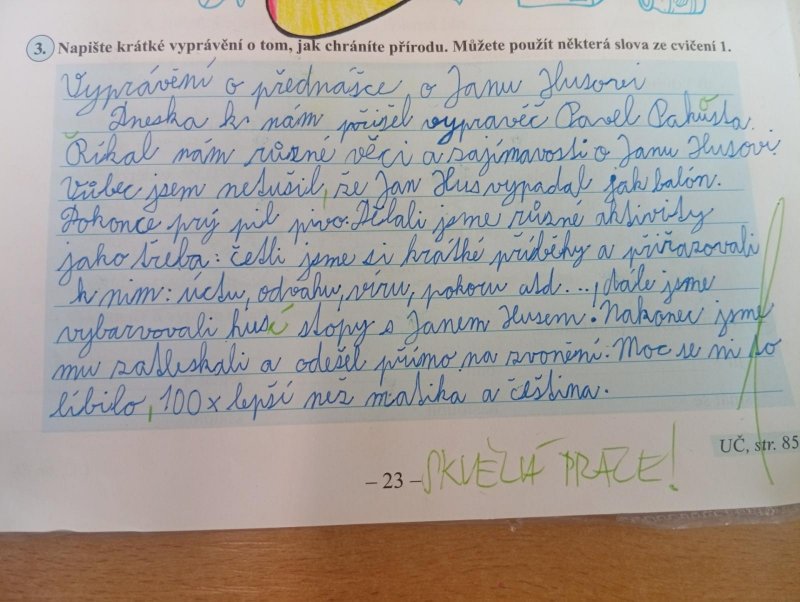 3. Napište krátké vyprávění o tom, jak chráníte přírodu. Můžete použít některá slova ze cvičení 1.
Vyprávění o přednášce o Janu Husovi
Dneska k nám přišel vypravěč Pavel Pakosta.
Říkal nám různé věci a zajímavosti o Janu Husovi.
Vůbec jsem netušil, že Jan Hus vypadal jak balón.
Dokonce prý pil pivo. Dělali jsme různé aktivity
jako třeba: četli jsme si krátké příběhy a přiřazovali
k nim: úctu, odvahu, víru, pokoru atd..., dále jsme
vybarvovali husí stopy s Janem Husem. Nakonec jsme
mu zatleskali a odešel přímo na zvonění. Moc se mi to
líbilo, 100x lepší než matika a čeština.
UČ, str. 85
– 23 –
SKVĚLÁ PRÁCE!